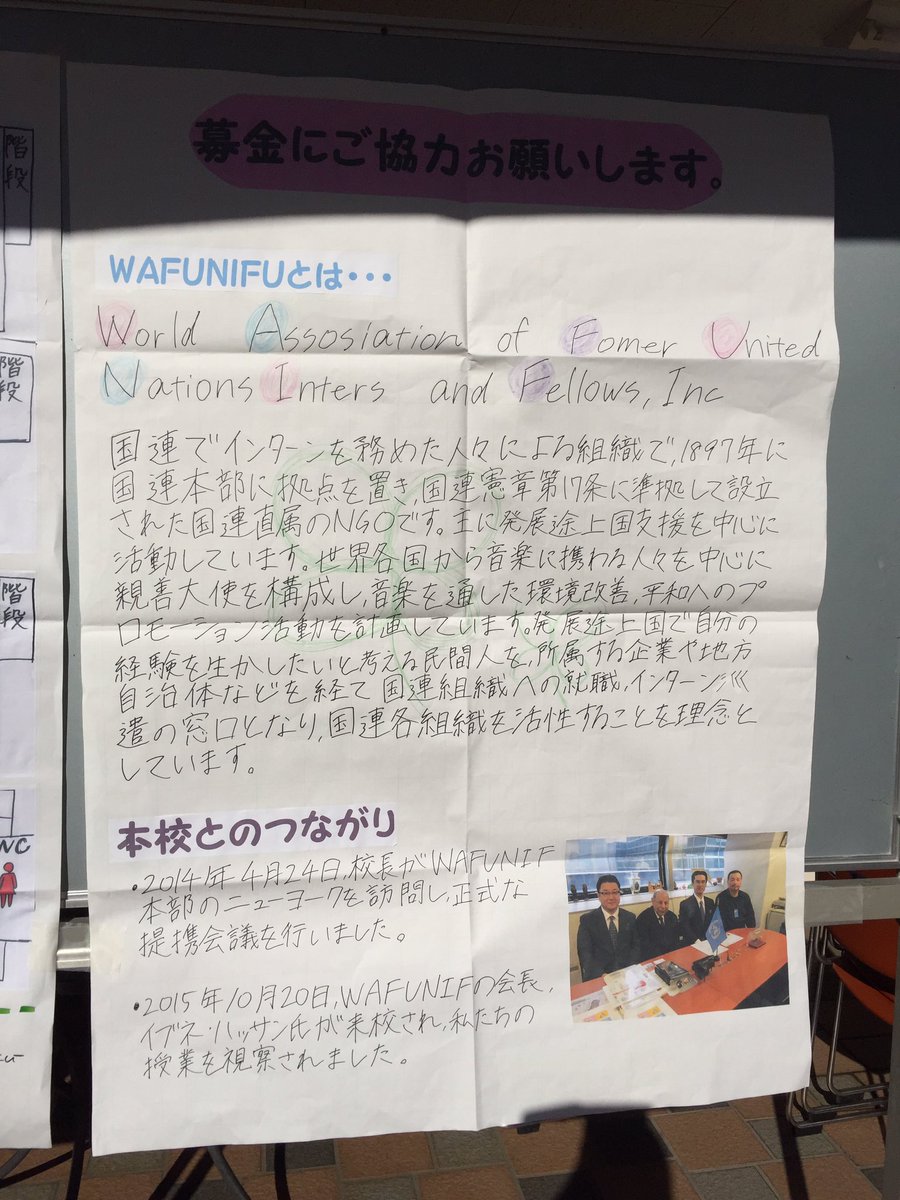 募金にご協力お願いします。
WAFUNIFUとは・・・
World Assosiation of Fomer United
Nations Inters and Fellows, Inc
国連でインターンを務めた人々による組織で,1897年に
国連本部に拠点を置き,国連憲章第17条に準拠して設立
された国連直属のNGOです。主に発展途上国支援を中心に
活動しています。世界各国から音楽に携わる人々を中心に
親善大使を構成し,音楽を通した環境改善,平和へのプ
ロモーション活動を計画しています。発展途上国で自分の
経験を生かしたいと考える民間人を,所属する企業や地方
自治体などを経て国連組織への就職,インターン派
遣の窓口となり,国連各組織を活性することを理念と
しています。
本校とのつながり
・2014年4月24日,校長がWAFUNIF
本部のニューヨークを訪問し,正式な
提携会議を行いました。
・2015年10月20日,WAFUNIFの会長,
イブネ・ハッサン氏が来校され,私たちの
授業を視察されました。
階段
階段
階段
WC